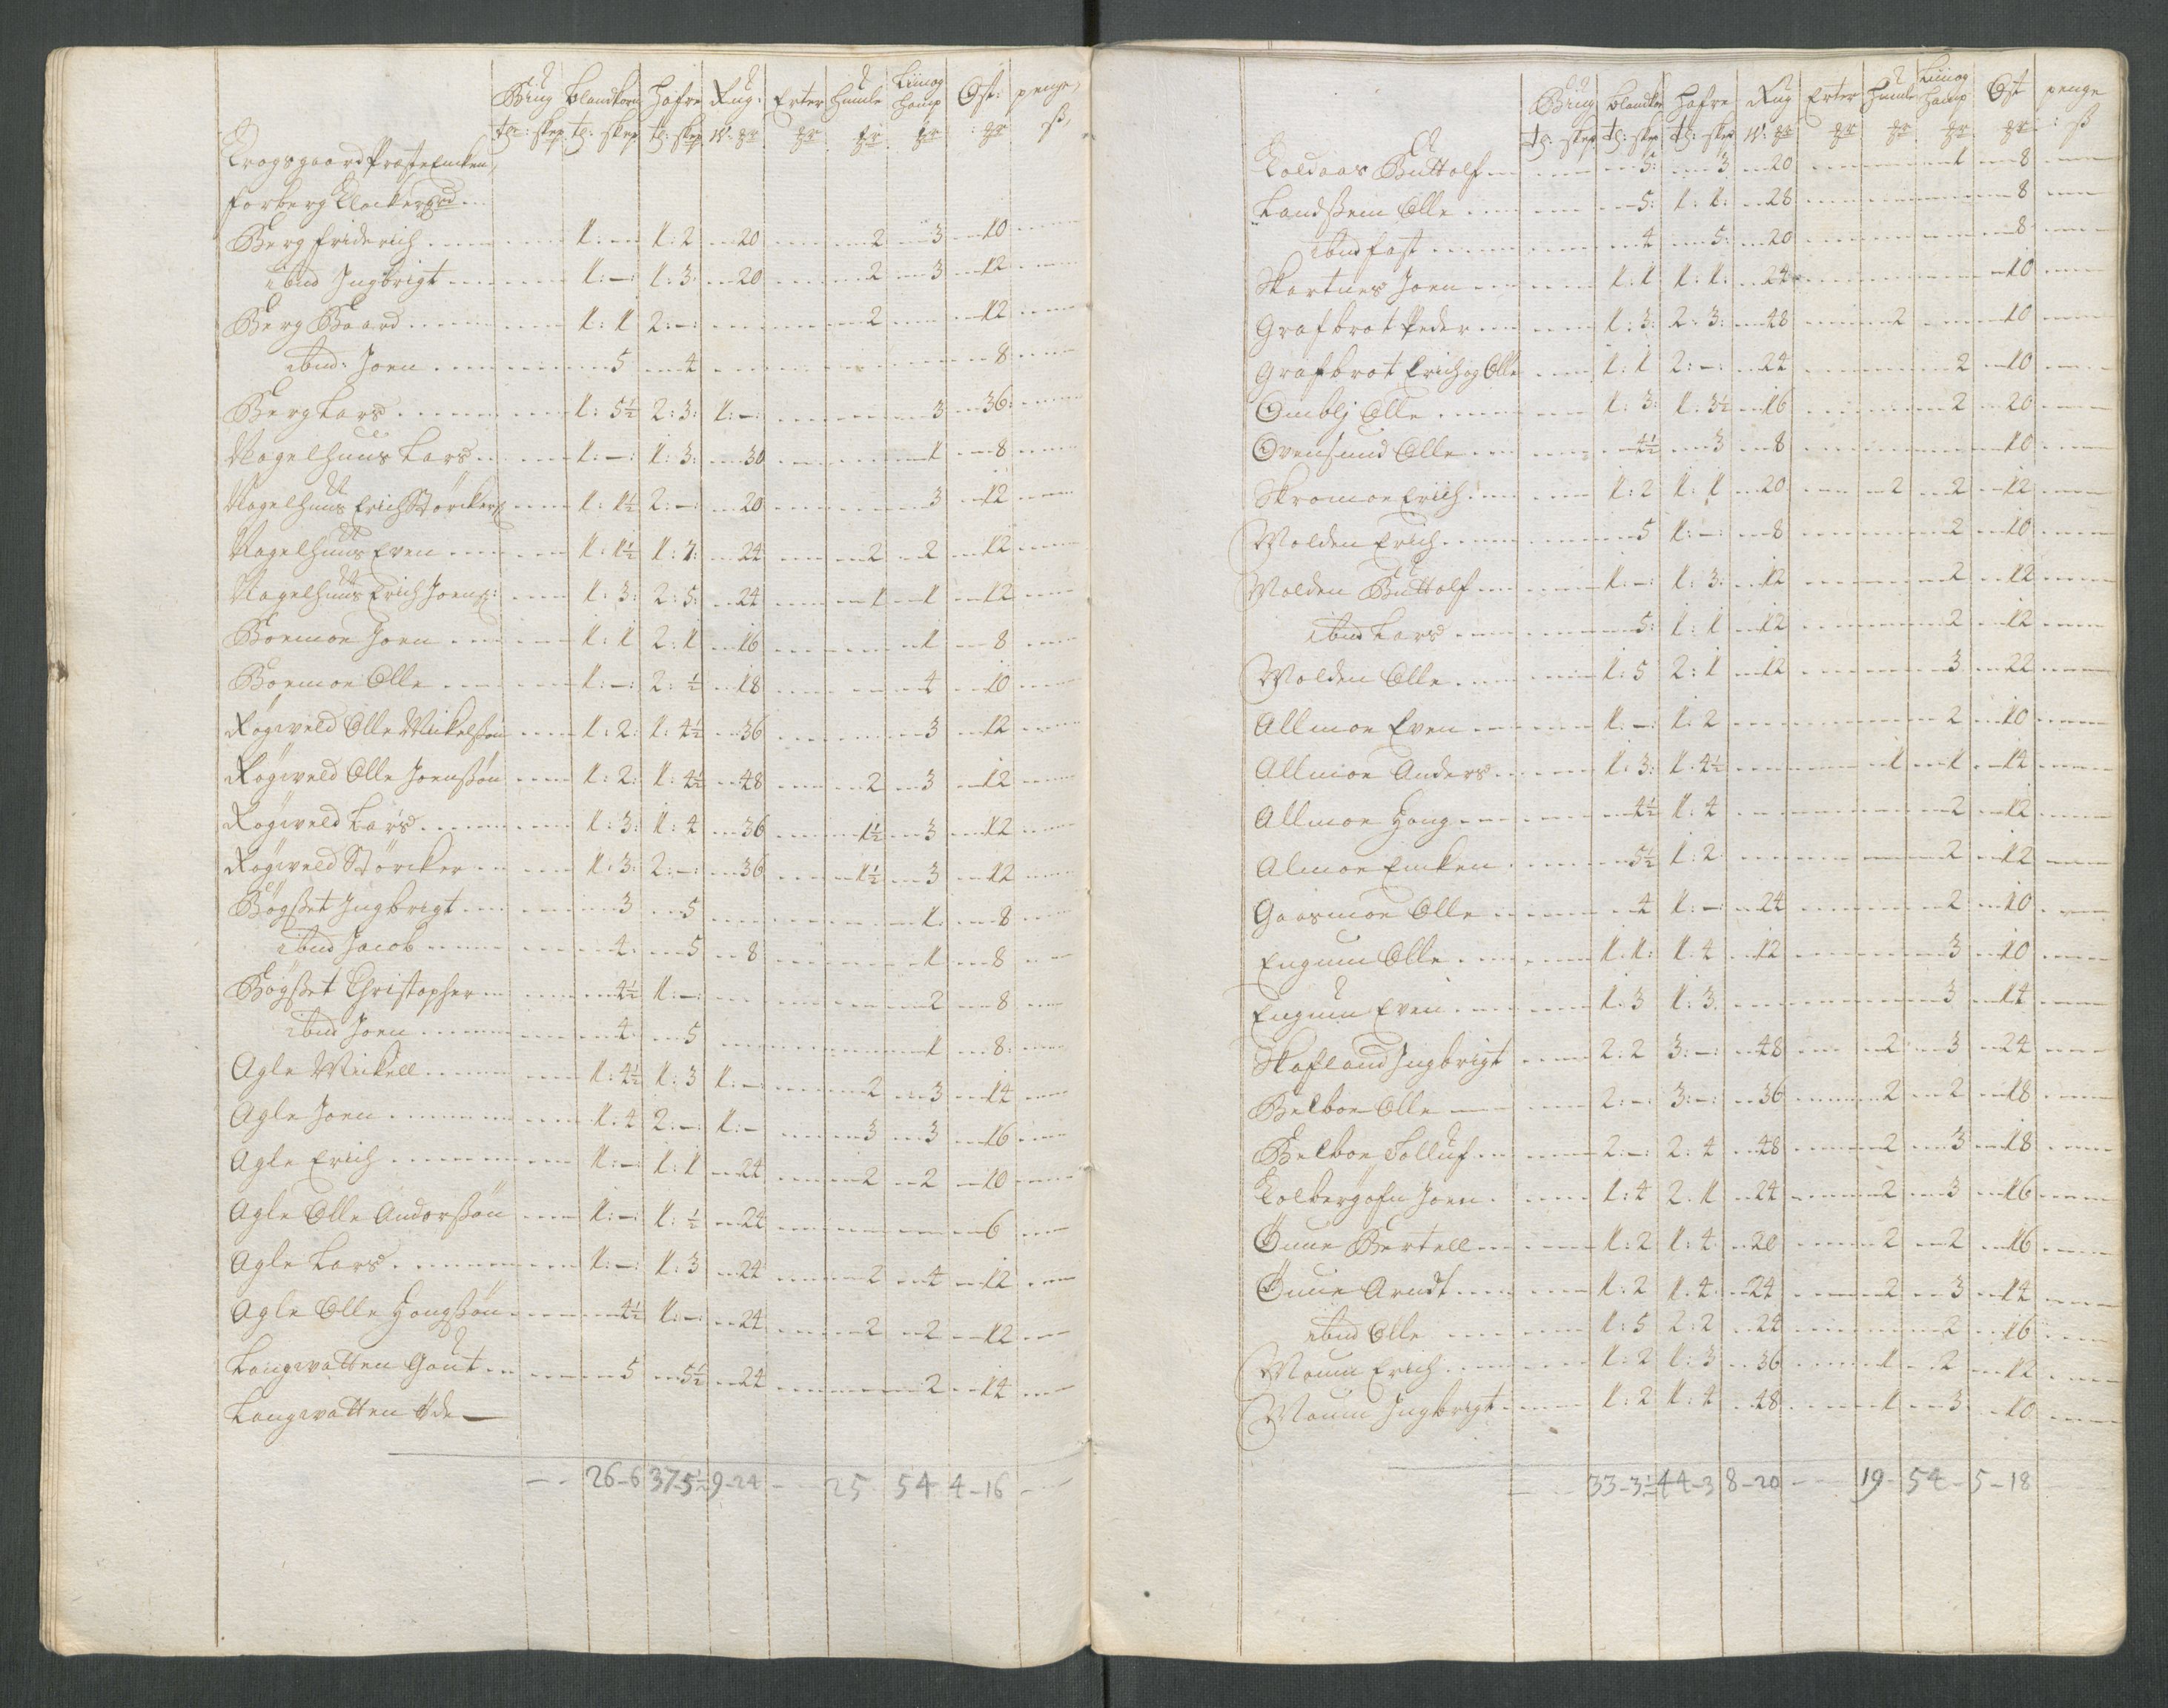 Biug blandkorn Hafre Rug: Erter Humle Liin og Hamp Ost: penge
tr: skep tr: skep tr: skep W: ß
Krogsgaard Præste Encken
Forberg Klocker
Berg Friderich 1: – 1: 2 20 2 3 10
ibnd Ingbrigt 1: – 1: 3 20 2 3 12
Berg Baard 1: 1 2: – 2 12
ibnd: Joen 5 4 8
Berg Lars 1: 5½ 2: 3: 1: – 3 36
Nagelhuus Lars 1: – 1: 3: 30 1 8
Nagelhuus Erich Störckers: 1: 1½ 2: – 20 3 12
Nagelhuus Even 1: 1½ 1: 1: 24 2 2 12
Nagelhuus Erich Joens: 1: 3: 2: 5: 24 1 1 12
Boemoe Joen 1: 1 2: 1 16 1 8
Boemoe Olle 1: – 2: ½ 18 4 10
Rögweld Olle Mickelssön 1: 2: 1: 4½ 36 3 12
Rögweld Olle Joenssön 1: 2: 1: 4½ 48 2 3 12
Rögweld Lars 1: 3: 1: 4 36 1½ 3 12
Rögweld Störcker 1: 3: 2: – 36 1½ 3 12
Bögsset Ingbrigt 3 5 1 8
ibnd Jacob 4 5 8 1 8
Bögsset Christopher 4½ 1: – 2 8
ibnd Joen 4 5 1 8
Agle Mickell 1: 4½ 1: 3 1: – 2 3 14
Agle Joen 1: 4 2: – 1: – 3 3 16
Agle Erich 1: – 1: 1 24 2 2 10
Agle Olle Andorssön 1: – 1: ½ 24 6
Agle Lars 1: – 1: 3 24 2 4 12
Agle Olle Hongssön 4½ 1: – 24 2 2 12
Langwatten Gout 5 5½ 24 2 14
Langwatten Øde
– – 26-6 37-5½ 9-24 – 25 54 4-16 –
Biug blandkor Hafre Rug Erter Humle Liin og Hamp Ost penge
tr: skep tr: skep tr: skep W: ß
Koldaas Buttolf 5: 3 20 1 8
Landssem Olle 5: 1: 1: 28 8
ibnd Fast 4 5: 20 8
Skartnes Joen 1: 1 1: 1: 24 10
Grafbrot Peder 1: 3: 2: 3: 48 2 10
Grafbrot Erich og Olle 1: 1 2: – 24 2 10
Omblj Olle 1: 3: 1: 3½ 16 2 20
Ovensund Olle 4½ 3 8 10
Skromoe Erich 1: 2 1: 1 20 2 2 12
Wolden Erich 5 1: – 8 2 10
Wolden Buttolf 1: – 1: 3: 12 2 12
ibnd Lars 5: 1: 1 12 2 12
Wolden Olle 1: 5 2: 1 12 3 22
Allmoe Even 1: – 1: 2 2 10
Allmoe Anders 1: 3: 1: 4½ 1 1 14
Allmoe Hong 4½ 1: 4 2 12
Almoe Encken 5½ 1: 2 2 12
Gaasmoe Olle 4 1: – 24 2 10
Engum Olle 1: 1: 1: 4 12 3 10
Engum Even 1: 3 1: 3 3 14
Skafland Ingbrigt 2: 2 3: – 48 2 3 24
Belboe Olle 2: – 3: – 36 2 2 18
Belboe Tolluf 2: – 2: 4 48 2 3 18
Kolbergofn Joen 1: 4 2: 1 24 2 3 16
Öuue Bertell 1: 2 1: 4 20 2 2 16
Öuue Arndt 1: 2 1: 4 24 2 3 14
ibnd Olle 1: 5 2: 2 24 2 16
Moum Erich 1: 2 1: 3 36 1 2 12
Moum Ingbrigt 1: 2 1: 4 48 1 3 10
– – 33-3½ 44-3 8-20 – – 19 – 54 – 5-18